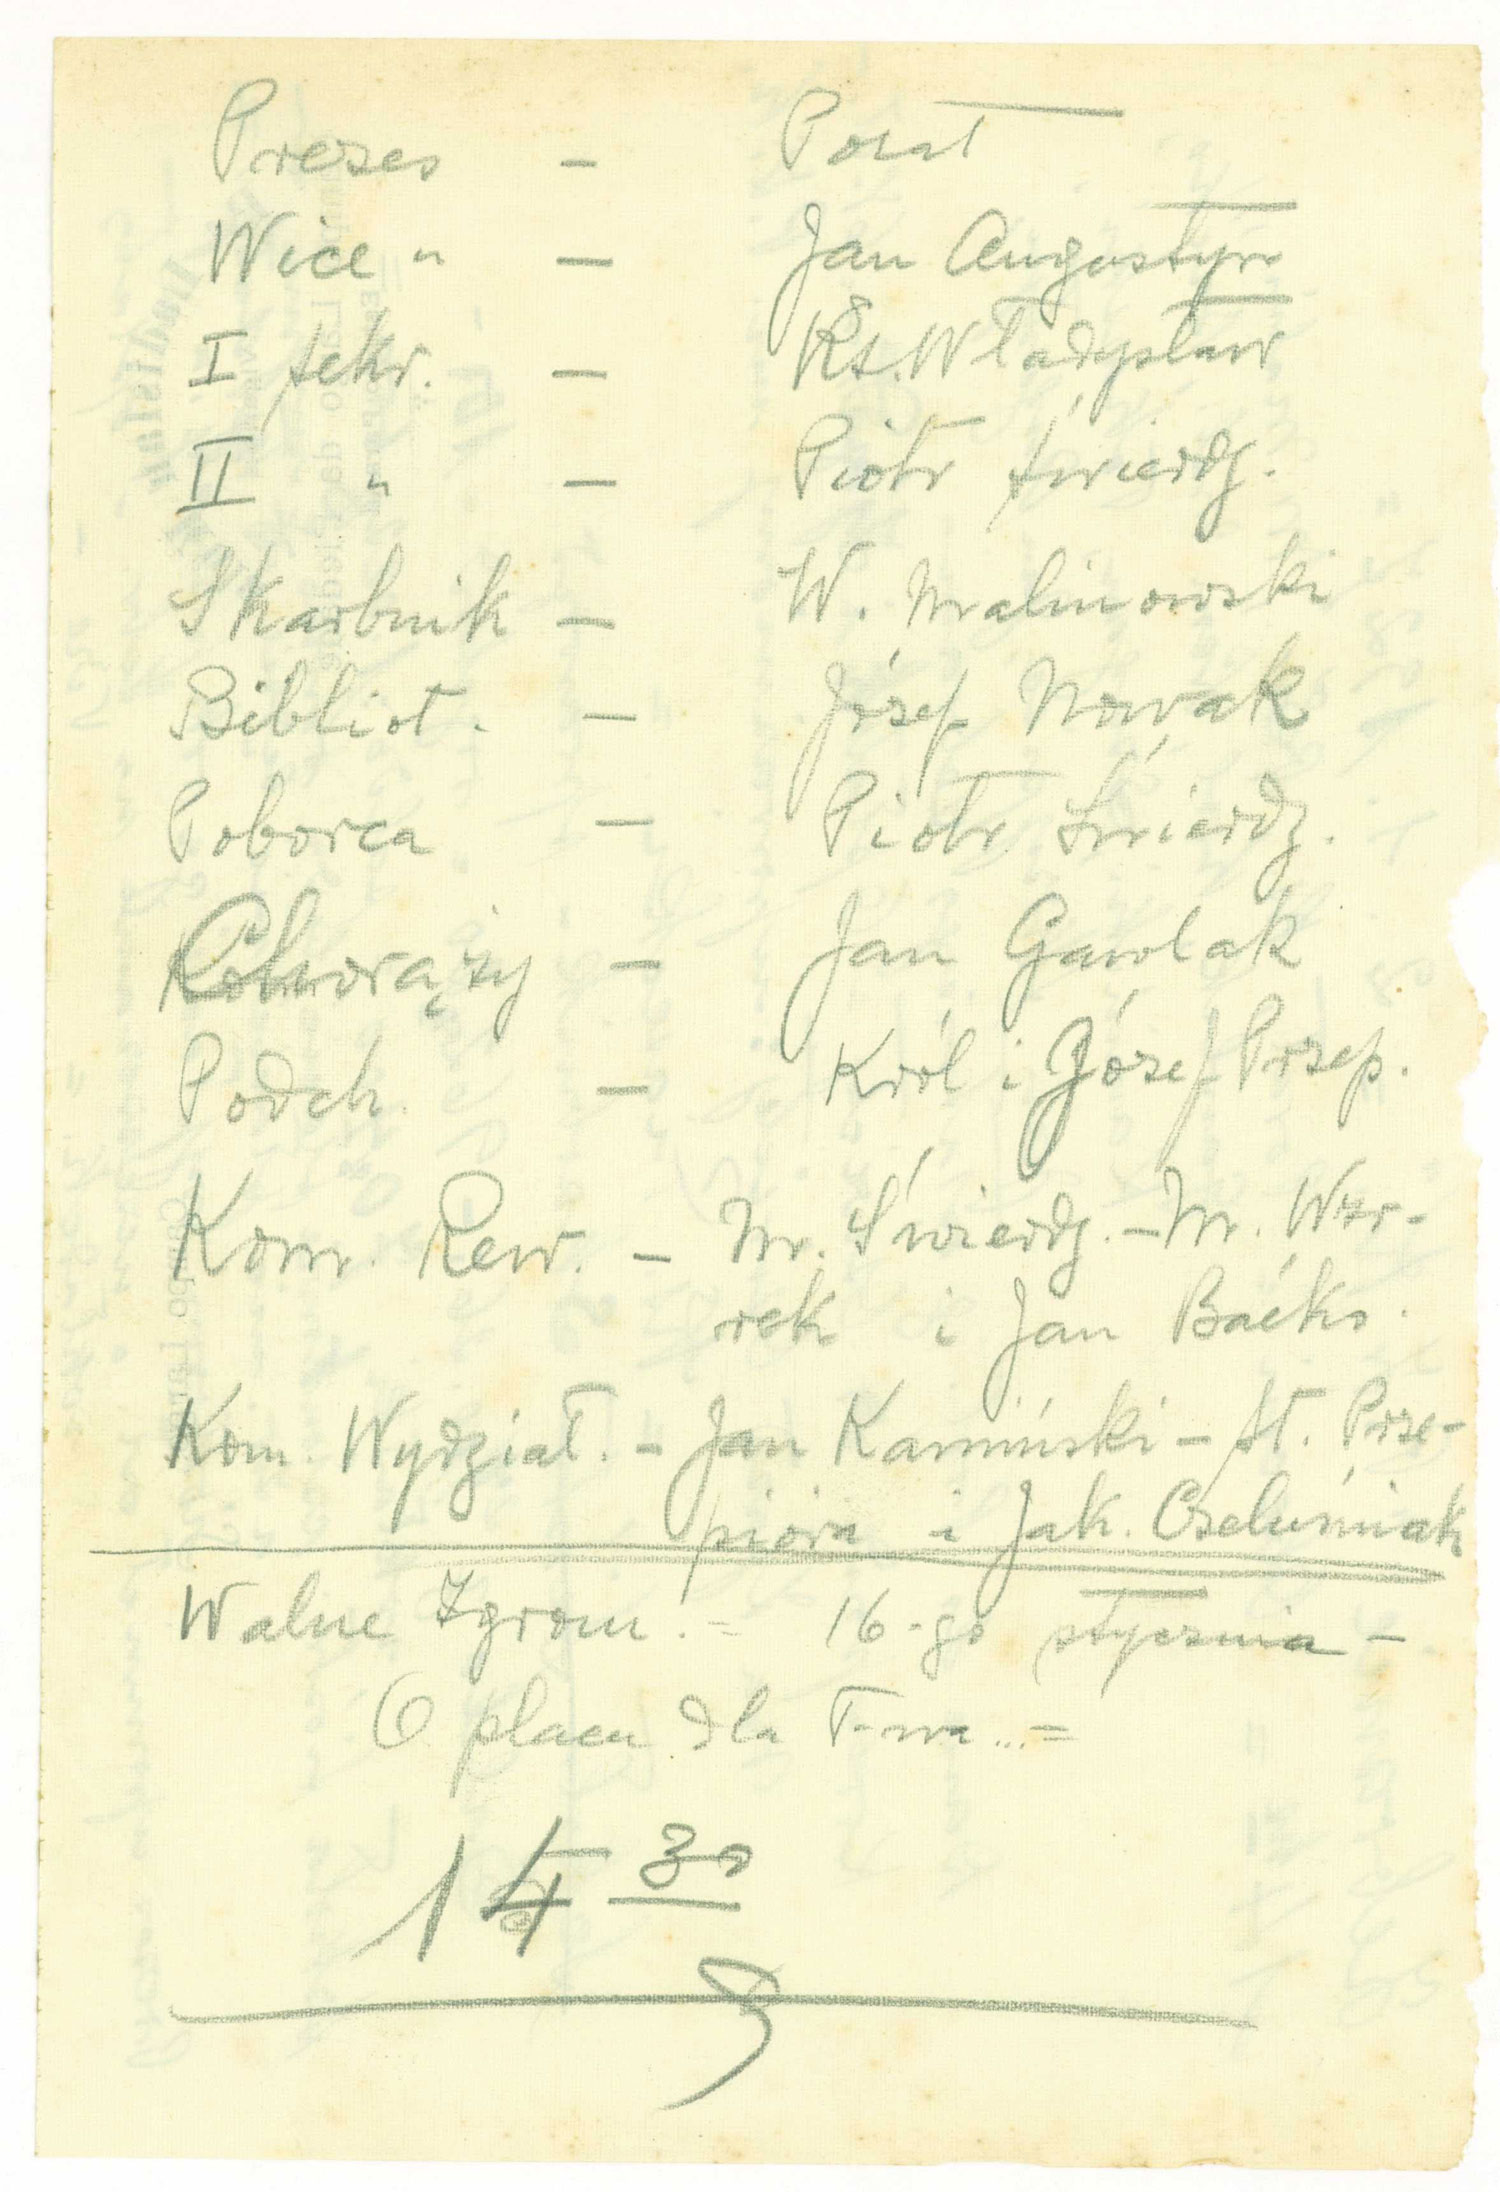 Prezes – Porat
Wice " – Jan Augustyn
I sekr. – Ks. Władysław
II " – Piotr Świerdz.
Skarbnik – W. Malinowski
Bibliot. – Józef Nowak
Poborca – Piotr Świerdz.
Chorąży – Jan Gawlak
Podch. – Król i Józef Przep.
Kom. Rew. – M. Świerdz. – M. Wzo-
rek i Jan Baćko.
Kom. Wydział. – Jan Kamiński – St. Prze-
pióra i Jak. Czeluśniak
Walne Zgrom. = 16-go stycznia –
O placu dla T-wa ... =
14 30